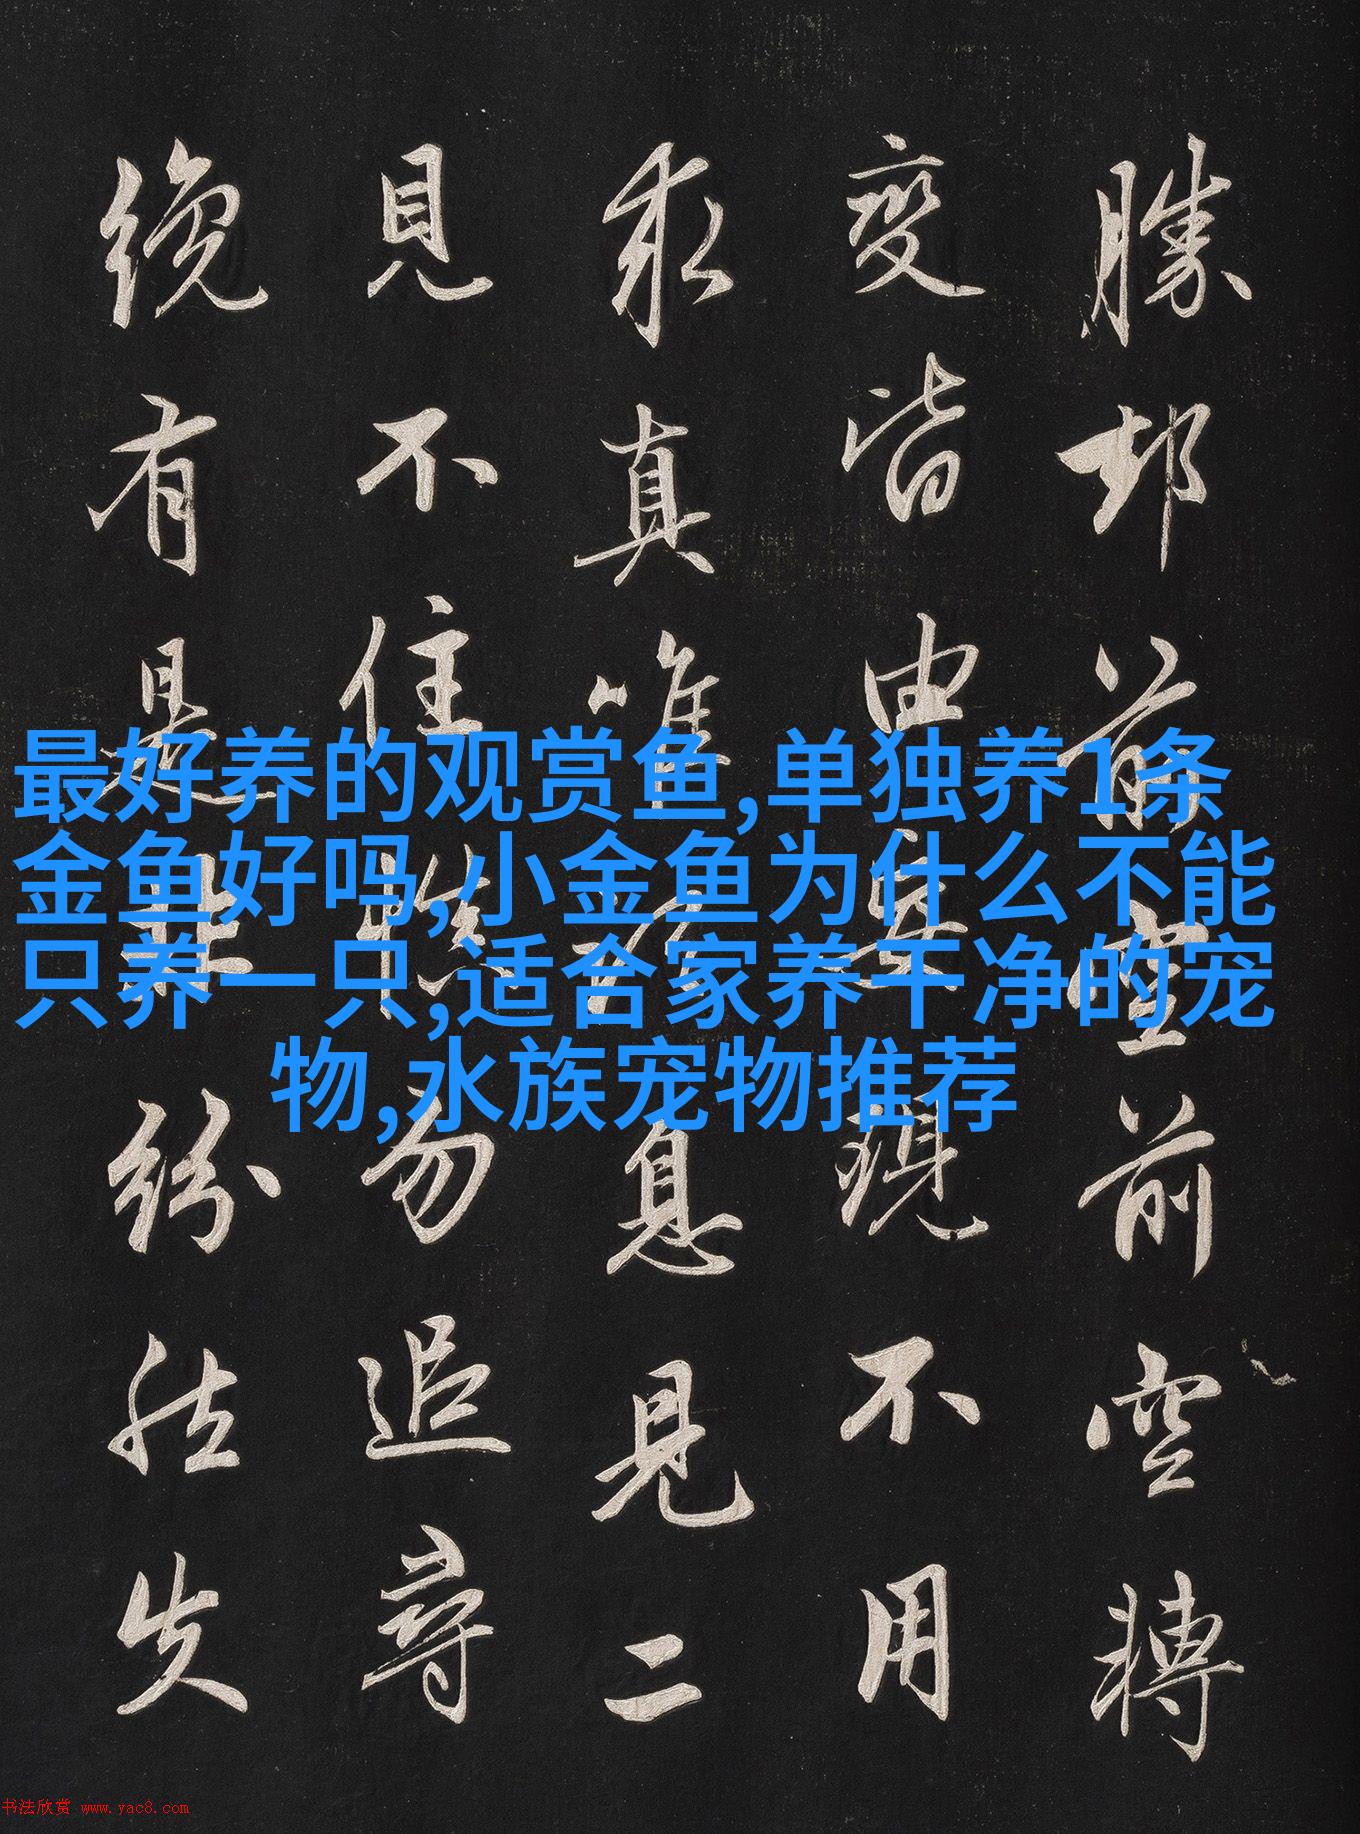 勝却前空前空轉
變皆由現不用
求真唯息見二
見不住慎勿追尋
纔有是非紛然失
最好养的观赏鱼,单独养1条
金鱼好吗,小金鱼为什么不能
只养一只,适合家养干净的宠
物,水族宠物推荐
书法欣赏 www.yac8.com